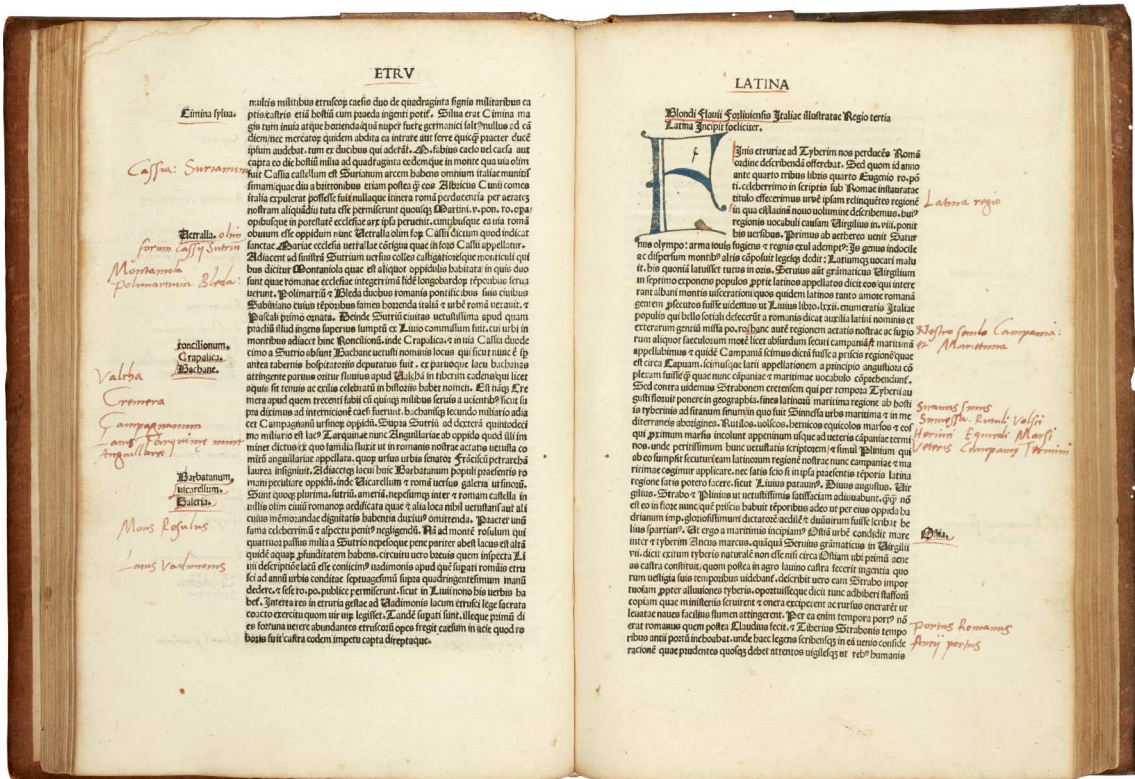 ETRV
multis militibus etruscoꝝ caesis duo de quadraginta signis militaribus ca
ptis/castris etiā hostiū cum praeda ingenti potiť. Silua erat Cimina ma
Cimina sylua.
gis tum inuia atque horrenda/quā nuper fuere germanici
diem/nec mercatoꝝ quidem abdita ea intrare aut ferre quicꝗ praeter ducē
ipsum audebat. tum ex ducibus qui aderāt. M. fabius caeso uel caesa aut
capta eo die hostiū milia ad quadraginta eodemque in monte qua uia olim
Cassia: Surianum
fuit Cassia castellum est Surianum arcem habens omnium italiae muniti
italia expulerat posseffe fuit/nullaque itinera romā perducentia per aetatem
nostram aliquādiu tuta esse permiserunt quousꝗ Martini. v. pon. ro. opa/
opibusque in potestatē ecclesiae arx ipsa peruenit. cuibusque ea uia romā
Vetralla. olim
obuium esse oppidum nunc Vetralla olim foꝝ Cassii dictum quod indicat
forum Cassij Sutrii
sanctae Mariae ecclesia uetrallae cōtigua quae in foco Cassii appellatur.
Adiacent ad sinistrā Sutrium uersus colles castigatioresque monticuli qui
Montaniola
bus dicitur Montaniola quae est aliquot oppidulis habitata/in quis duo
Polimartium Bleda:
sunt quae romanae ecclesiae integerrimā fidē longobardoꝝ tēporibus serua
uerunt. Polimartiū &amp; Bleda duobus romanis pontificibus suis ciuibus
Sabiniano cuius tēporibus fames horrenda italiā &amp; urbē romā uexauit. &amp;
Pascali primo ornata. Deinde Sutriū ciuitas uetustissima apud quam
praeliū illud ingens superius sumptū ex Liuio commissum fuit. cui urbi in
roncilionum.
montibus adiacet hinc Roncilionū. inde Crapalica. &amp; in uia Cassia duode
Crapalica.
cimo a Sutrio absunt Bachanae uetusti nominis locus
Bachane.
antea tabernis hospitatoriis deputatus fuit. ex paruoque lacu bachanas
Valcha
attingente paruus oritur fluuius apud Valchā in tyberim cadens/qui licet
quis sit tenuis ac exilis celebratū in historiis habet nomen. Est nāqꝫ Cre
Cremera
mera apud quem trecenti fabii cū quinqꝫ milibus seruis
Campagnanum
est Campagnanū ursinoꝝ oppidū. Supra Sutriū ad dexterā quintodeci
Lacus Tarquinę nunc
mo miliario est lacꝰ Tarquinae nunc Anguillariae ab oppido quod illi im
Anguillare
minet dictus/ex quo familia fluxit ut in romanis nostrae aetatis uetusta co
mitū anguillariae appellata. quoꝝ ursus urbis senator Frāciscū petrarchā
Barbatanum.
laurea insigniuit. Adiacetqꝫ lacui huic Barbatanum populi praesentis ro
uicarellum.
mani peculiare oppidū. inde Uicarellum &amp; romā uersus galeria ursinorū.
Galeria.
Sunt quoqꝫ plurima. sutriū. ameriā. nepesumqꝫ inter &amp; romam castella in
nullis olim ciuiū romanoꝝ aedificata quae &amp; alia loca nihil uetustatis aut ali
cuius mēorandae dignitatis habentia duximꝰ omittenda. Praeter unū
Mons Rosulus
fama celeberrimū &amp; aspectu penitꝰ negligendū. Nā ad montē rosulum qui
quattuor passus milia a Sutrio nepesoque penc pariter abest lacus est altā
quidē aquaꝝ pfunditatem habens. circuitu uero breuis quem inspecta Li
Lacus Vadimonis
uii descriptiōe lacū esse coniicimꝰ uadimonis apud quē supati romāis etru
sci ad annū urbis conditae septuagesimū supra quadringentesimum manū
dedere. &amp; sese ro. po. publice permiserunt. sicut in Liuii nono his uerbis ha
beť. Interea res in etruria gestae ad Uadimonis lacum etrusci lege sacrata
coacto exercitu quom uir uiꝝ legisset. Tandē supati sunt. illeque primū di
es fortuna uetere abundantes etruscorū opes fregit caesum in acie quod ro
boris fuit castra eodem impetu capta direptaque.
LATINA
Blondi Flauii Forliuiensis Italiae illustratae Regio tertia
Latina Incipit foeliciter.
Finis etruriae ad Tyberim nos perducēs Romā
ordine describendā offerebat. Sed quom id anno
ante quarto tribus libris quarto Eugenio ro. pō
ti. celeberrimo in scriptis sub Romae instauratae
titulo effecerimus urbē ipsam relinquētes regionē
Latina regio
in qua est latinā nouo uolumine describemus. huiꝰ
regionis uocabuli causam Uirgilius in. viii. ponit
bis uersibus. Primus ab aethereo uenit Satur
nus olympo: arma iouis fugiens &amp; regnis exul ademptꝭ: Is genus indocile
ac dispersum montibꝰ altis cōposuit legesqꝫ dedit: Latiumqꝫ uocari malu
it. his quoniā latuisset tutus in oris. Seruius aūt grāmaticus Uirgilium
in septimo exponens populos pprie latinos appellatos dicit eos/qui intere
rant albani montis uiscerationi quos quidem latinos tanto amore romanā
gentem psecutos fuisse uidemus ut Liuius libro. lxxii. enumeratis Italiae
populis qui bello sociali defecerūt a romanis dicat auxilia latini nominis et
exterarum gentiū missa po. ro: hanc autē regionem aetatis nostrae ac supio
Nostro seculo Campania:
rum aliquot saeculorum mos licet absurdum secuti campaniā &amp; maritimā
et Maritima
appellabimus &amp; quidē Campaniā scimus dictā fuisse a priscis regionē quae
est circa Capuam. scimusque latii appellationem a principio angustiora cō
plexam fuisse qꝫ quae nunc cāpaniae &amp; maritimae uocabulo cōprehendunť.
Sed contra uidemus Strabonem cretensem qui per tempora Tyberii au
gusti floruit ponere in geographia. fines latinorū maritima regione ab hosti
is tyberinis ad sitanum sinum/in quo fuit Sinuessa urbs maritima &amp; in me
Sinuessa. Rutuli Volsci
diterraneis aborigines. Rutilos. uolscos. hernicos equicolos marsos &amp; eos
Hernici Equicoli Marsi
qui proximum marsis incolunt appeninum usque ad ueteris cāpaniae termi
Veteris Campanię Termini
nos. unde peritissimum hunc uetustatis scriptorem/&amp; simul Plinium qui
ab eo sumpsit secuti/totam latinorum regionē nostrae nunc campaniae &amp; ma
ritimae cogimur applicare. nec satis scio si in ipsa praesentis tēporis latina
regione satis potero facere. sicut Liuius patauinꝰ. Diuus augustus. Uir
gilius. Strabo &amp; Plinius ut uetustissimis satisfaciam adiuuabunt.
est eo in flore nunc quē priscis habuit tēporibus adeo ut per eius oppida ha
drianum imp. gloriosissimum dictatorē aedilē &amp; duūuirum fuisse scribat he
lius spartianꝰ. Ut ergo a maritimis incipiam/Ostiā urbē condidit mare
Ostia.
inter &amp; tyberim Ancus marcus. quāquā Seruius grāmaticus in Uirgilii
vii. dicit exitum tyberis naturalē non esse nisi circa Ostiam ubi primū aene
as castra constituit. quom postea in agro lauino castra fecerit ingentia quo
rum uestigia suis temporibus uidebant. describit uero eam Strabo impor
tuosam ppter alluuiones tyberis. oportuisseque dicit tunc adhiberi staffarū
copiam quae ministeriis seruirent &amp; onera exciperent ac rursus onerarēt ut
leuatae naues facilius flumen attingerent. Per ea enim tempora portꝰ nō
Portus Romanus
erat romanus quem postea Claudius fecit. &amp; Tiberius Strabonis tempo
Antij portus
ribus antii portū inchoabat. unde haec legens scribensqꝫ in eā uenio conside
rationē quae prudentes quosqꝫ debet attentos uigilesqꝫ ut rebꝰ humanis